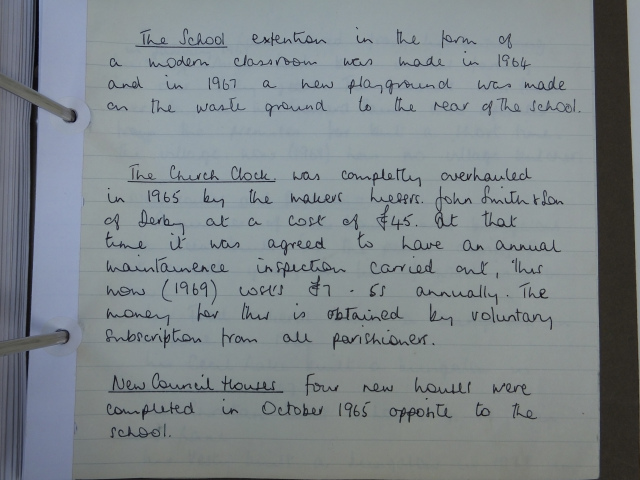 The School extention in the form of
a modern classroom was made in 1964
and in 1967 a new playground was made
on the waste ground to the rear of the school.
The Church Clock was completly overhauled
in 1965 by the makers Messrs. John Smith & Son
of Derby at a cost of £45. At that
time it was agreed to have an annual
maintainence inspection carried out, this
now (1969) costs £7 - 5s annually. The
money for this is obtained by voluntary
subscription from all parishioners.
New Council Houses Four new houses were
completed in October 1965 opposite to the
school.